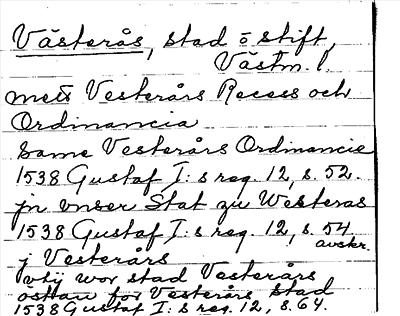 Västerås, stad o stift,
Västm. l.
medh Vesterårs Recess och
Ordinancia
Same Vesterårs Ordinancie
1538 Gustaf I:s reg. 12, s. 52.
jn vnser Stat zu Westeras
1538 Gustaf I:s reg. 12, s. 54
avskr.
j Vesterårs
vtij wor stad Vesterårs
osttan for Vesterårs stad
1538 Gustaf I:s reg. 12, s. 64.